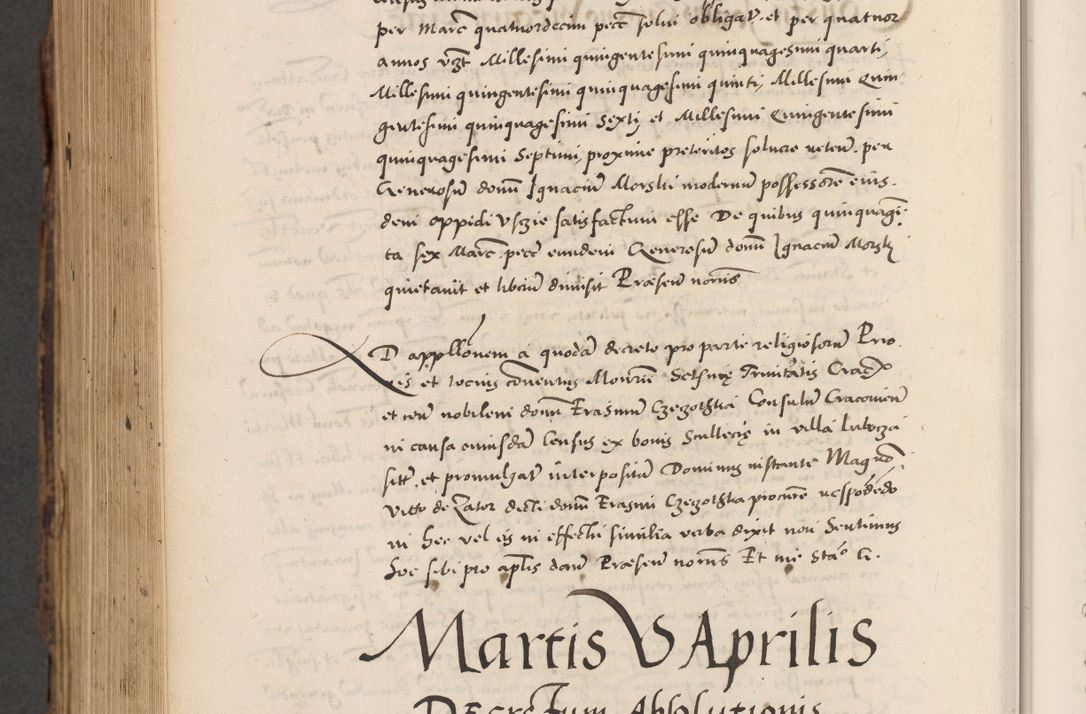 per Marc quatuordecim pecc solui obligat. et per quatuor
annos vzt Millesimi quingentesimi quinquagesimi quarti,
Millesimi quingentesimi quinquagesimi quinti, Millesimi Quin
gentesimi quinquagesimi Sexti et Millesimi Quingentesimi
quinquagesimi Septimi, proxime preteritos soluere neten. per
Generosum domin Ignacium Morski modernum possessorem eius.
dem oppidi Vszie satisfactum esse De quibus quinquagi:
ta sex Marc. pecc eundem Generosum domin Ignacium Morski
quietauit et liberum dimisit Præsen nomis
AD appllonem a quodam decreto pro parte religiosorum Prio.
ris et tocius conuentus Monrii Setsuae Trinitatis Crac
et con nobilem domin Erasmum Czeczothka Consulem Cracovien
in causa cuiusdam Census ex bonis Scultecie in villa Lubocza
sitt. et promulgat interpositam Dominus instante Magro
Vitto de Zator dicti domini Erasmi Czeczothka procure respondendo
in hec vel eis in effectu similia verba dixit non Sentimus
hoc sibi pro aplis dari Præsen nomis Et me Sta° G.
Martis V Aprilis
Decretum Absolutionis